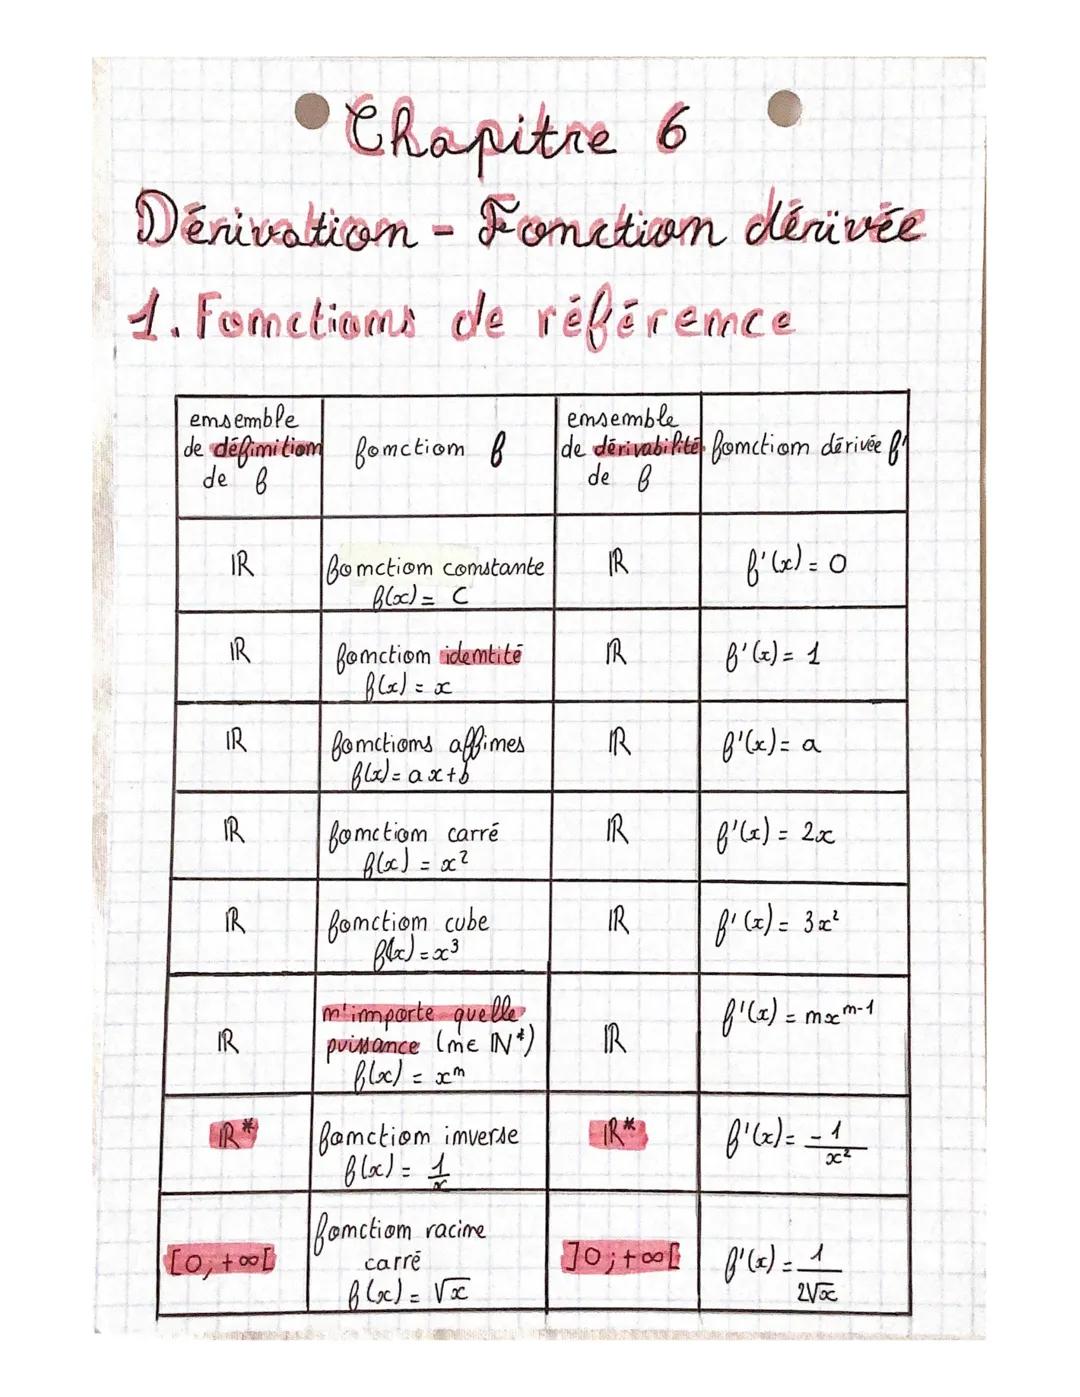 Chapitre 6
Dérivation - Fonction dérivée
1. Fonctions de référence
ensemble
de définition
de f
fonction f
ensemble
de dérivabilité
de f
fonction dérivée f'
ℝ
fonction constante
f(x) = C
ℝ
f'(x) = 0
ℝ
fonction identité
f(x) = x
ℝ
f'(x) = 1
ℝ
fonctions affines
f(x) = ax+b
ℝ
f'(x) = a
ℝ
fonction carré
f(x) = x²
ℝ
f'(x) = 2x
ℝ
fonction cube
f(x) = x³
ℝ
f'(x) = 3x²
ℝ
n'importe quelle
puissance (n∈ ℕ*)
f(x) = xⁿ
ℝ
f'(x) = nxⁿ⁻¹
ℝ*
fonction inverse
f(x) = 1/x
ℝ*
f'(x) = -1/x²
[0; +∞[
fonction racine
carré
f(x) = √x
]0; +∞[
f'(x) = 1/2√x